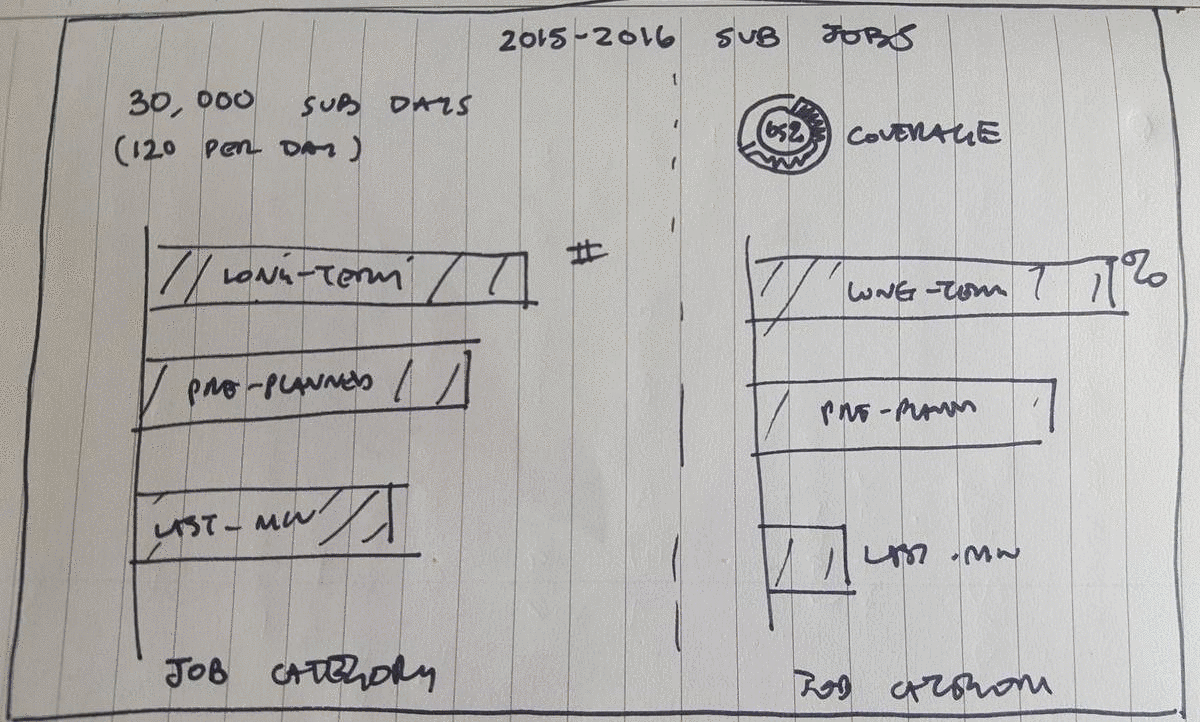 2015-2016 SUB JOBS
30,000 SUB DAYS
(120 PER DAY)
LONG-TERM
#
PRE-PLANNED
LAST-MIN
JOB CATEGORY
COVERAGE
LONG-TERM
%
PRE-PLANN
LAST-MIN
JOB